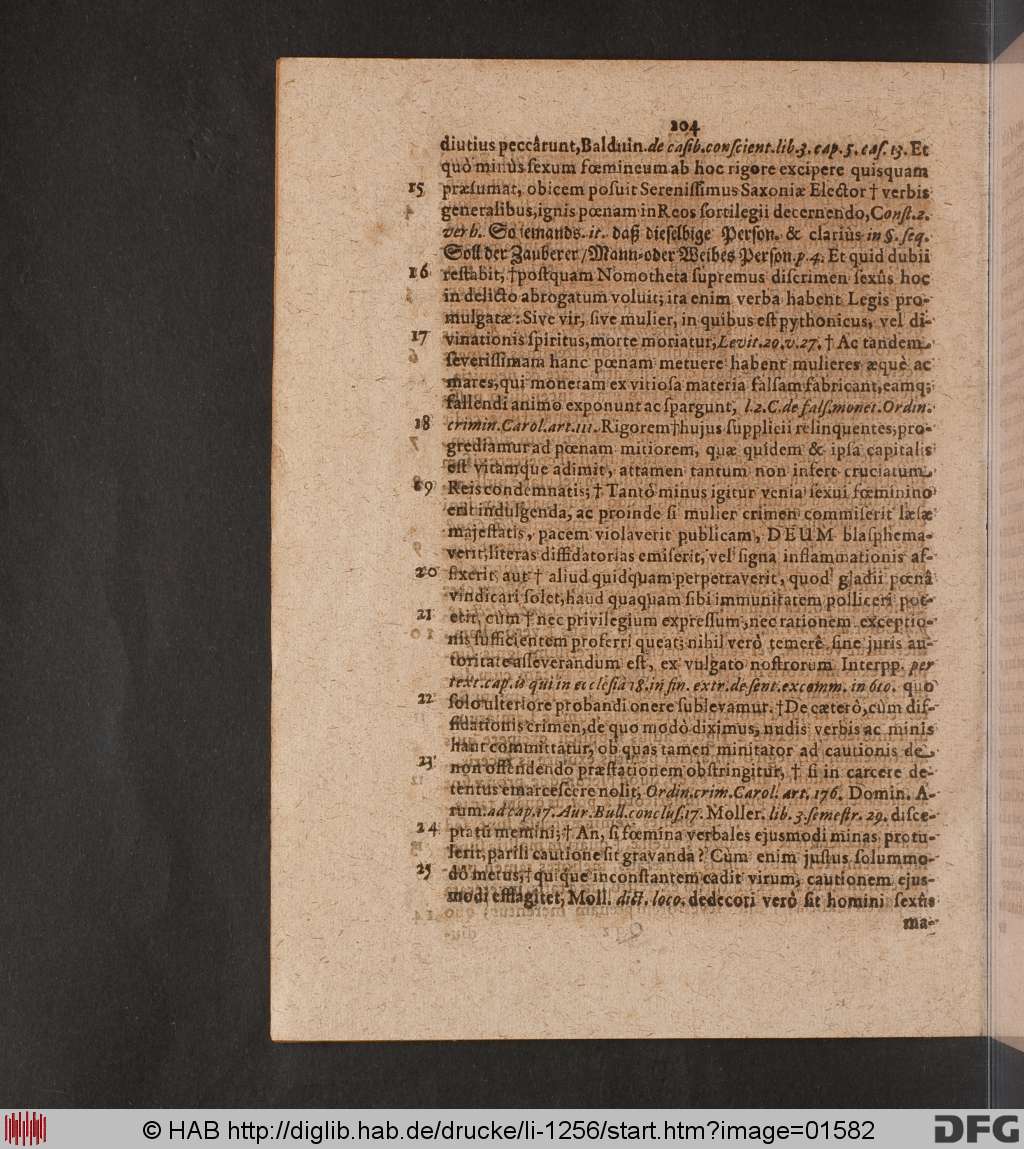 204
diutius peccârunt, Balduin. de casib. conscient. lib. 3. cap. 5. cas. 13. Et
quò minùs sexum fœmineum ab hoc rigore excipere quisquam
15 præsumat, obicem posuit Serenissimus Saxoniæ Elector † verbis
generalibus, ignis pœnam in Reos sortilegii decernendo, Const. 2.
verb. So iemands. it. daß dieselbige Person. & clariùs in §. seq.
Soll der Zauberer / Mann- oder Weibes Person. p. 4. Et quid dubii
16 restabit, † postquam Nomotheta supremus discrimen sexûs hoc
in delicto abrogatum voluit; ita enim verba habent Legis pro-
mulgatæ: Sive vir, sive mulier, in quibus est pythonicus, vel di-
17 vinationis spiritus, morte moriatur, Levit. 20. v. 27. † Ac tandem
severissimam hanc pœnam metuere habent mulieres æquè ac
mares, qui monetam ex vitiosa materia falsam fabricant, eamq;
fallendi animo exponunt ac spargunt, l. 2. C. de fals. monet. Ordin.
18 crimin. Carol. art. 111. Rigorem † hujus supplicii relinquentes, pro-
grediamur ad pœnam mitiorem, quæ quidem & ipsa capitalis
est vitamque adimit, attamen tantum non infert cruciatum
19 Reis condemnatis; † Tantò minus igitur venia sexui fœminino
erit indulgenda, ac proinde si mulier crimen commiserit læsæ
majestatis, pacem violaverit publicam, DEUM blasphema-
verit, literas diffidatorias emiserit, vel signa inflammationis af-
20 fixerit aut † aliud quidquam perpetraverit, quod gladii pœnâ
vindicari solet, haud quaquam sibi immunitatem polliceri pot-
21 erit, cùm † nec privilegium expressum, nec rationem exceptio-
nis sufficientem proferri queat; nihil verò temerè sine juris au-
toritate asseverandum est, ex vulgato nostrorum Interpp. per
text. cap. is qui in ecclesiâ 18. in fin. extr. de sent. excomm. in 6to. quo
22 solo ulteriore probandi onere sublevamur. † De cæterò, cùm dif-
fidationis crimen, de quo modò diximus, nudis verbis ac minis
haut committatur, ob quas tamen minitator ad cautionis de
23 non offendendo præstationem obstringitur, † si in carcere de-
tentus emarcescere nolit, Ordin. crim. Carol. art. 176. Domin. A-
rum. ad cap. 17. Aur. Bull. conclus. 17. Moller. lib. 3. semestr. 29. disce-
24 ptatū memini; † An, si fœmina verbales ejusmodi minas protu-
lerit, parili cautione sit gravanda? Cùm enim justus solummo-
25 dò metus, † quique inconstantem cadit virum, cautionem ejus-
modi efflagitet, Moll. dict. loco. dedecori verò sit homini sexûs
ma-
© HAB http://diglib.hab.de/drucke/li-1256/start.htm?image=01582
DFG